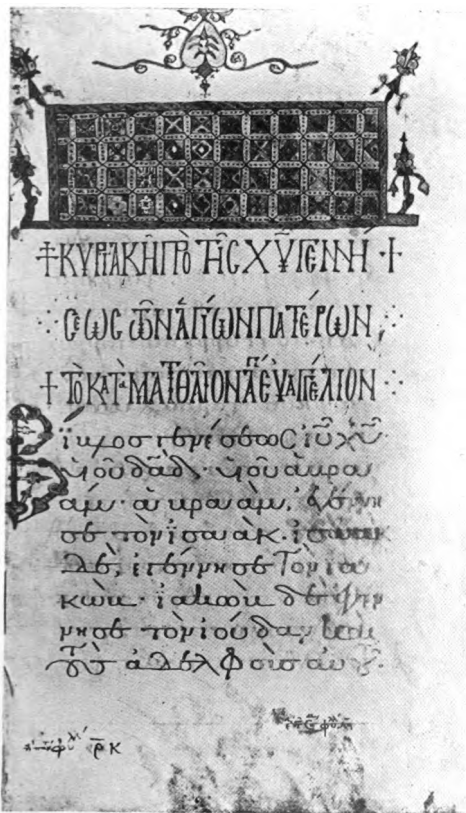 + ΚΥΡΙΑΚΗ ΠΡΟ ΤΗϹ ΧΥ ΓΕΝΝΗ +
ϹΕΩϹ ΤΩΝ ΑΓΙΩΝ ΠΑΤΕΡΩΝ
+ ΤΟ ΚΑΤΑ ΜΑΤΘΑΙΟΝ ΕΥΑΓΓΕΛΙΟΝ
Βίβλος γενέσεως ἰῦ χῦ
υἱοῦ δα̅δ· υἱοῦ ἀβρα
άμ· ἀβραάμ, ἐγέννη
σε τὸν ἰσαάκ. ἰσαὰκ
δὲ, ἐγέννησε τὸν ἰα
κώβ· ἰακὼβ δὲ ἐγέν
νησε τὸν ἰούδαν καὶ
τοὺς ἀδελφοὺς αὐτοῦ